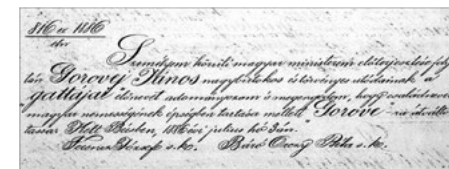 816 ex 1886
Személyem körüli magyar ministerem előterjesztése foly-
tán Gorovej Minos nagybirtokos és törvényes utódainak a
"gattájai" előnevet adományozom s megengedem, hogy családnevét
magyar nemességének épségben tartása mellett "Gorove"-ra
tassa. Kelt Bécsben, 1886 évi julius hó 3án.
Ferencz József s.k. Báró Orczy Béla s.k.